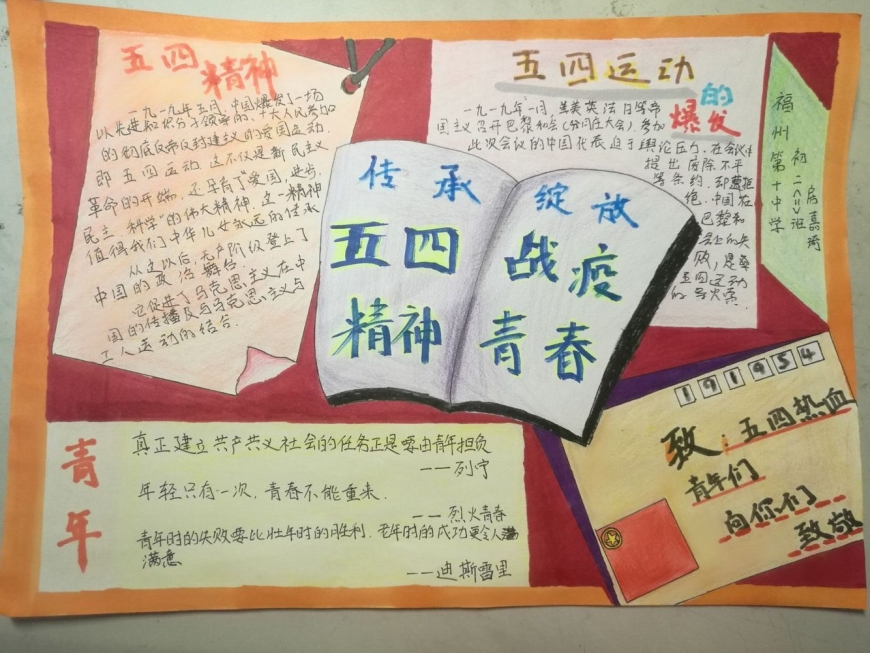 五四精神
一九一九年五月,中国爆发了一场
以先进知识分子领导的,广大人民参加
的彻底反帝反封建主义的爱国运动.
即五四运动.这不仅是新民主主义
革命的开端,还孕育了"爱国,进步,
民主,科学"的伟大精神.这一精神
值得我们中华儿女永远的传承
从这以后,无产阶级登上了
中国的政治舞台.
它促进了马克思主义在中
国的传播及与马克思主义与
工人运动的结合.
传承
五四
精神
绽放
战疫
青春
五四运动
的
爆发
一九一九年一月,美英法日等帝
国主义召开巴黎和会(分赃大会),参加
此次会议的中国代表迫于舆论压力,在会议中
提出废除不平
等条约,却遭拒
绝.中国在
巴黎和
会上的失
败,是
五四运动
的导火索.
福州第十中学
初二(二)班
青年
真正建立共产共义社会的任务正是要由青年担负
——列宁
年轻只有一次,青春不能重来.
——烈火青春
青年时的失败要比壮年时的胜利,老年时的成功更令人满
满意
——迪斯雷里
191954
致:五四热血
青年们
向你们
致敬